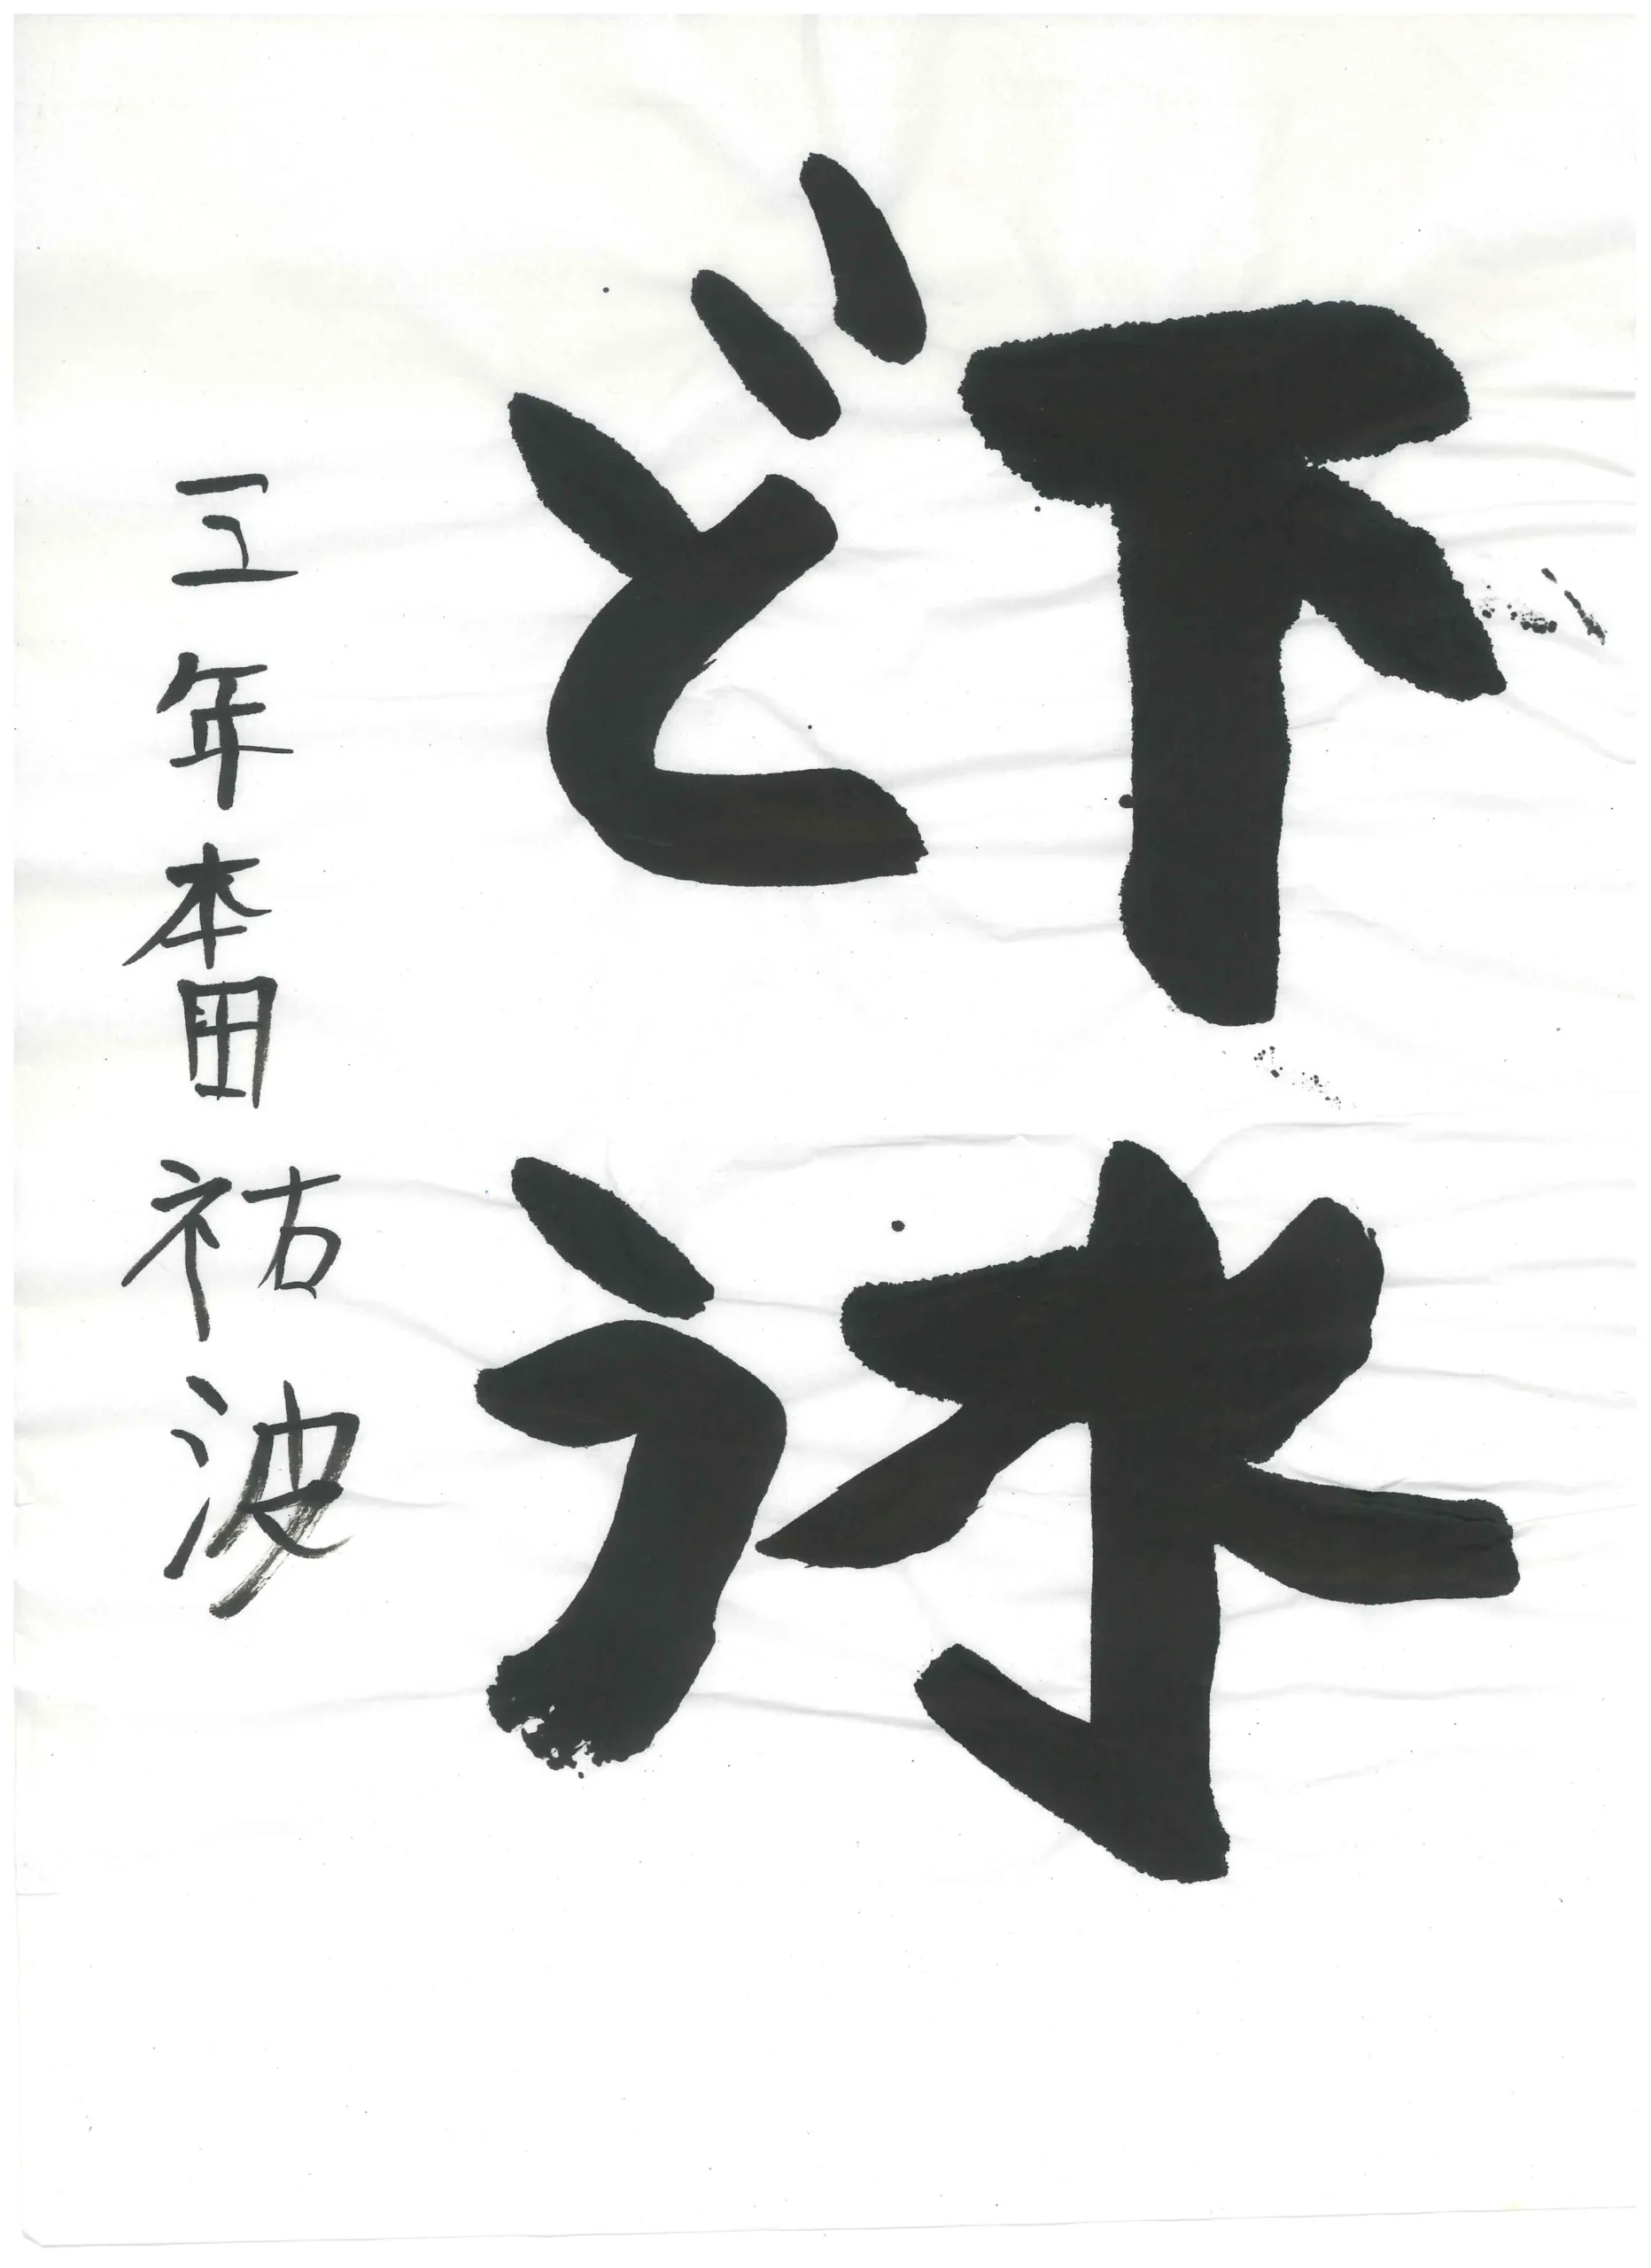 下水
どう
年 本田 祐波